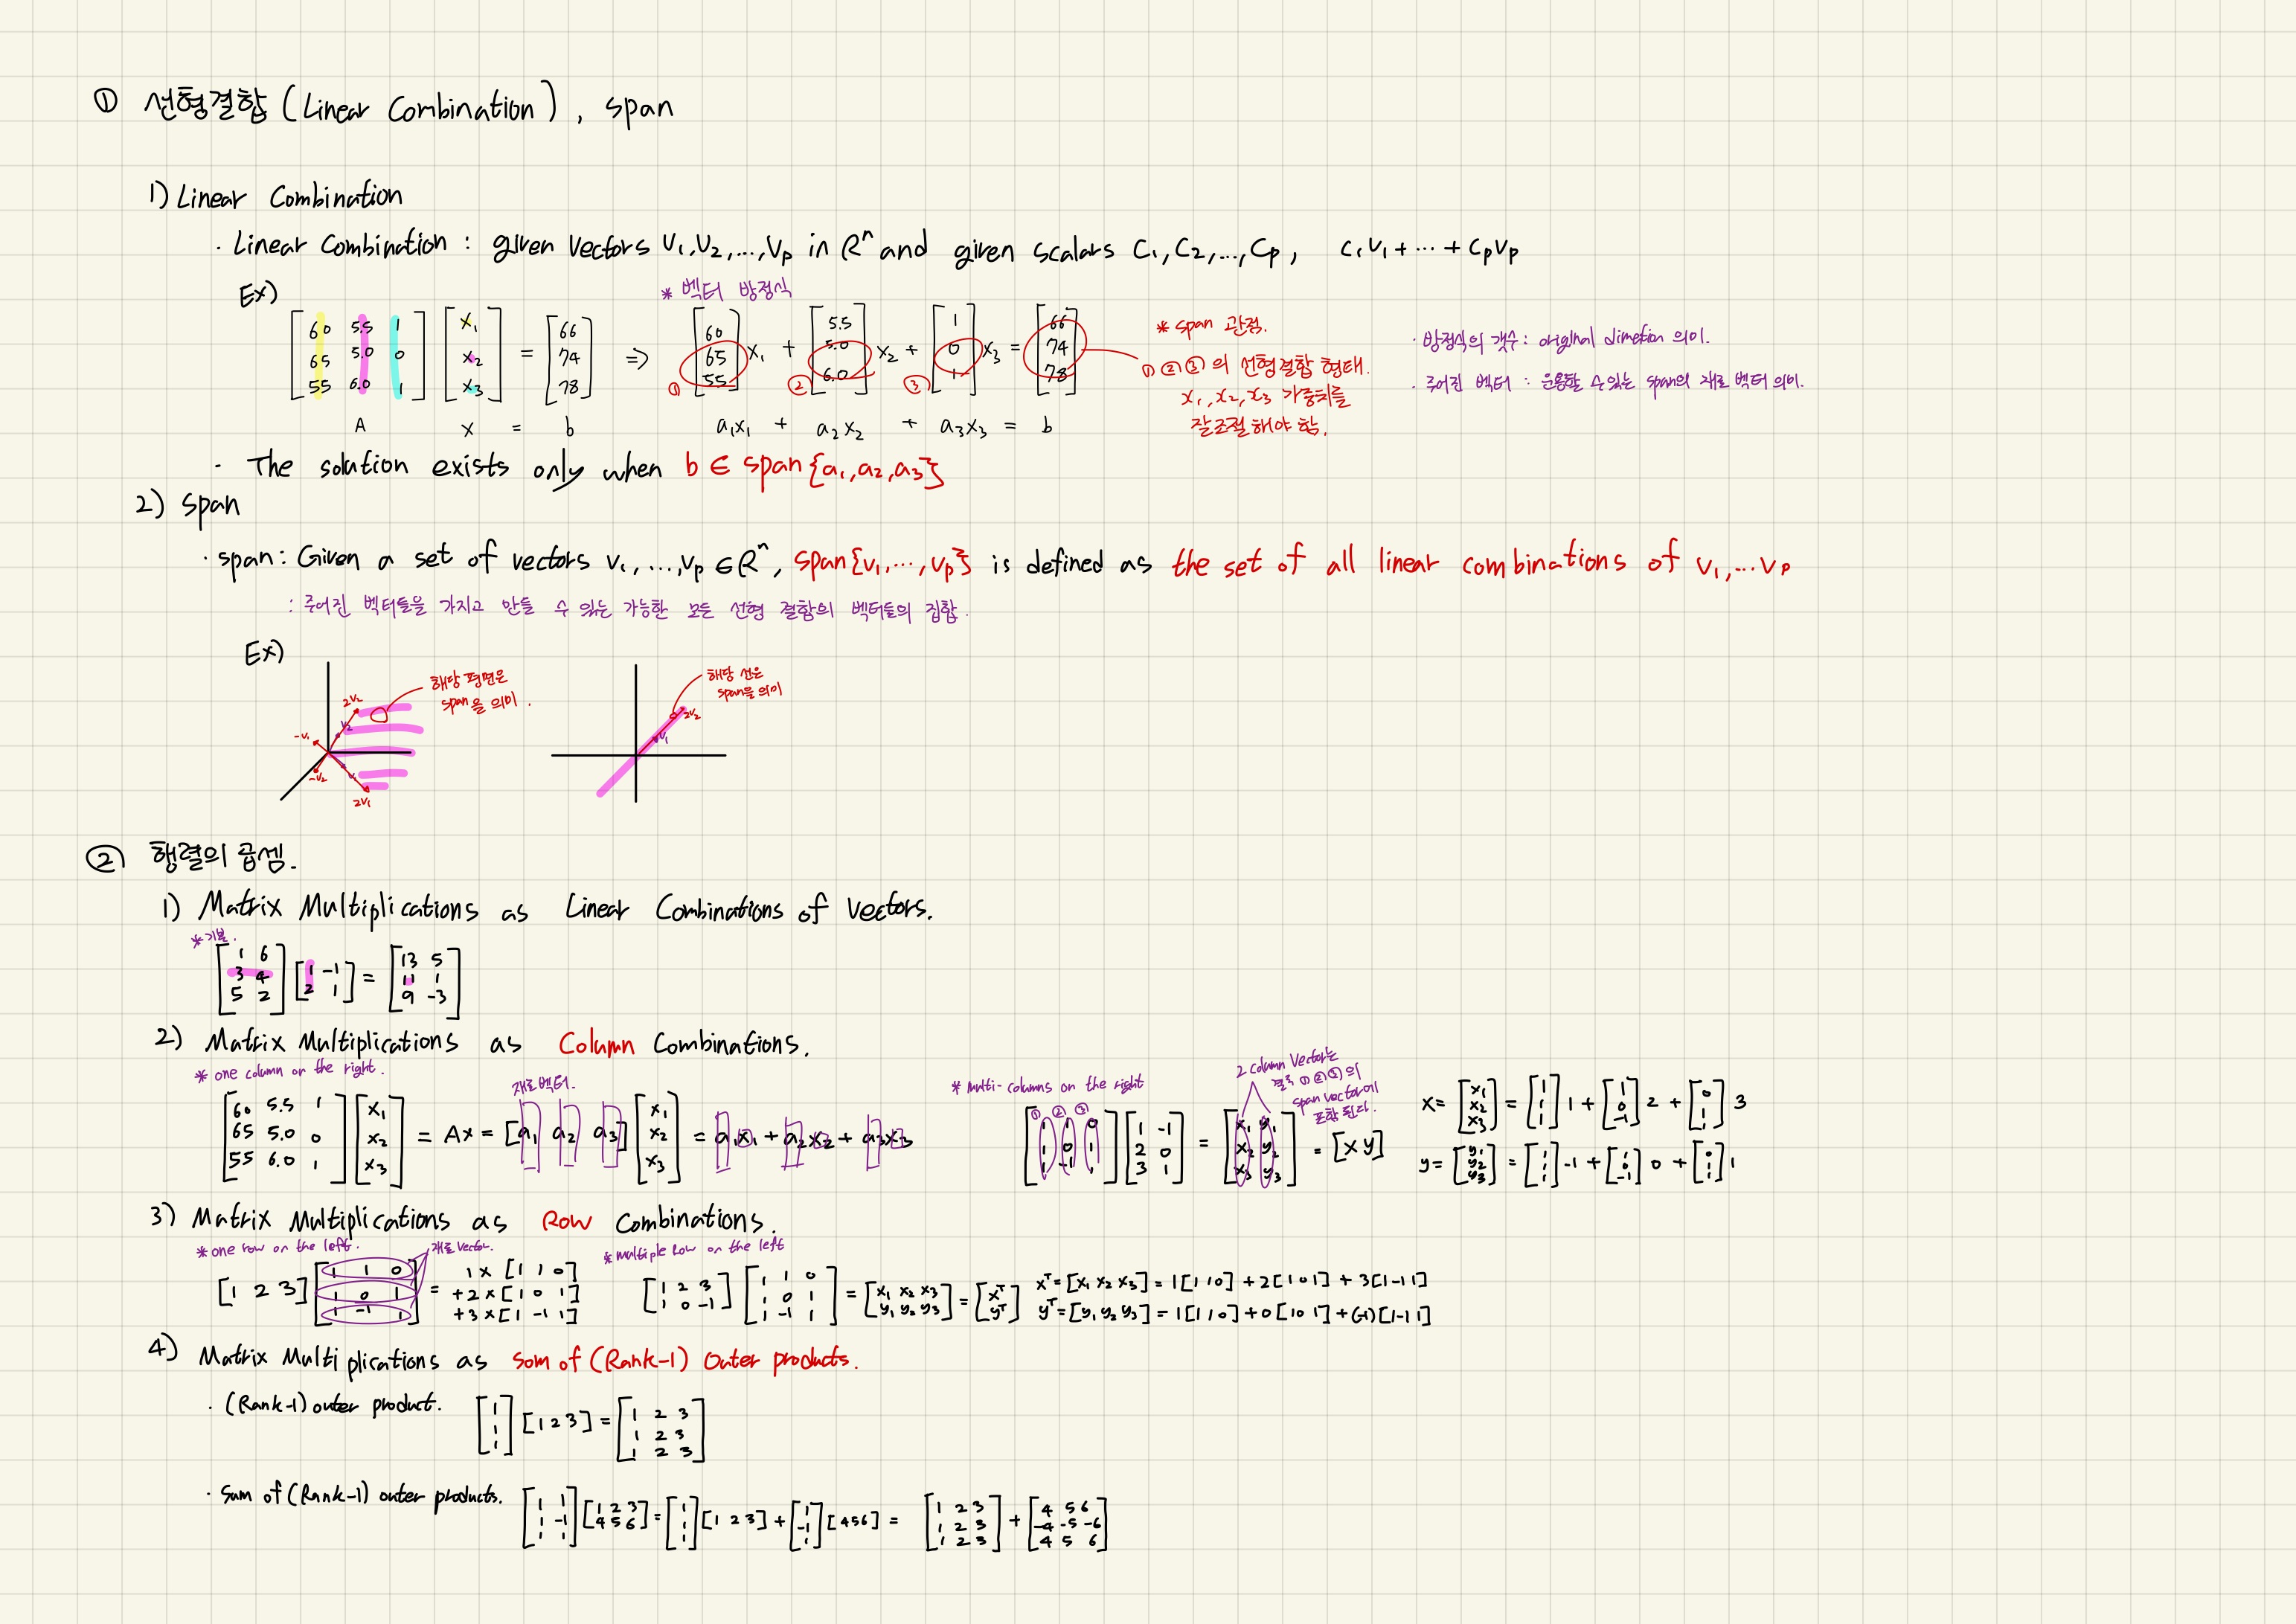 ① 선형결합 (Linear Combination), span
1) Linear Combination
· Linear Combination : given vectors v₁, v₂, ..., vₚ in ℝⁿ and given scalars c₁, c₂, ..., cₚ, c₁v₁ + ··· + cₚvₚ
Ex)
* 벡터 방정식
[60 5.5 1; 65 5.0 0; 55 6.0 1] [x₁; x₂; x₃] = [66; 74; 78] ⇒ [60; 65; 55] x₁ + [5.5; 5.0; 6.0] x₂ + [1; 0; 1] x₃ = [66; 74; 78]
① ② ③
A x = b a₁x₁ + a₂x₂ + a₃x₃ = b
* span 관점.
① ② ③ 의 선형결합 형태.
x₁, x₂, x₃ 가중치를
잘 조절해야 함.
· 방정식의 갯수 : original dimetion 의미.
· 주어진 벡터 : 운용할 수 있는 span의 재료 벡터 의미.
· The solution exists only when b ∈ span{a₁, a₂, a₃}
2) span
· span : Given a set of vectors v₁, ..., vₚ ∈ ℝⁿ, span{v₁, ···, vₚ} is defined as the set of all linear combinations of v₁, ··· vₚ
: 주어진 벡터들을 가지고 만들 수 있는 가능한 모든 선형 결합의 벡터들의 집합.
Ex)
해당 평면은
span을 의미.
2v₂
v₂
-v₁
-v₂
v₁
2v₁
해당 선은
span을 의미
2v₂
v₁
② 행렬의 곱셈.
1) Matrix Multiplications as Linear Combinations of Vectors.
* 기본.
[1 6; 3 4; 5 2] [1 -1; 2 1] = [13 5; 11 1; 9 -3]
2) Matrix Multiplications as Column Combinations.
* one column on the right.
재료벡터.
[60 5.5 1; 65 5.0 0; 55 6.0 1] [x₁; x₂; x₃] = Ax = [a₁ a₂ a₃] [x₁; x₂; x₃] = a₁x₁ + a₂x₂ + a₃x₃
* Multi-columns on the right
2 column Vector는
결국 ① ② ③ 의
span vector에
포함 된다.
① ② ③
[1 1 0; 1 0 1; 1 -1 1] [1 -1; 2 0; 3 1] = [x₁ y₁; x₂ y₂; x₃ y₃] = [x y]
x = [x₁; x₂; x₃] = [1; 1; 1] 1 + [1; 0; -1] 2 + [0; 1; 1] 3
y = [y₁; y₂; y₃] = [1; 1; 1] -1 + [1; 0; -1] 0 + [0; 1; 1] 1
3) Matrix Multiplications as Row Combinations.
* one row on the left.
재료 vector.
[1 2 3] [1 1 0; 1 0 1; 1 -1 1] = 1 × [1 1 0]
+2 × [1 0 1]
+3 × [1 -1 1]
* multiple row on the left
[1 2 3; 1 0 -1] [1 1 0; 1 0 1; 1 -1 1] = [x₁ x₂ x₃; y₁ y₂ y₃] = [xᵀ; yᵀ]
xᵀ = [x₁ x₂ x₃] = 1[1 1 0] + 2[1 0 1] + 3[1 -1 1]
yᵀ = [y₁ y₂ y₃] = 1[1 1 0] + 0[1 0 1] + (-1)[1 -1 1]
4) Matrix Multiplications as Som of (Rank-1) Outer products.
· (Rank-1) outer product. [1; 1; 1] [1 2 3] = [1 2 3; 1 2 3; 1 2 3]
· Sum of (Rank-1) outer products. [1 1; 1 -1; 1 1] [1 2 3; 4 5 6] = [1; 1; 1] [1 2 3] + [1; -1; 1] [4 5 6] = [1 2 3; 1 2 3; 1 2 3] + [4 5 6; -4 -5 -6; 4 5 6]